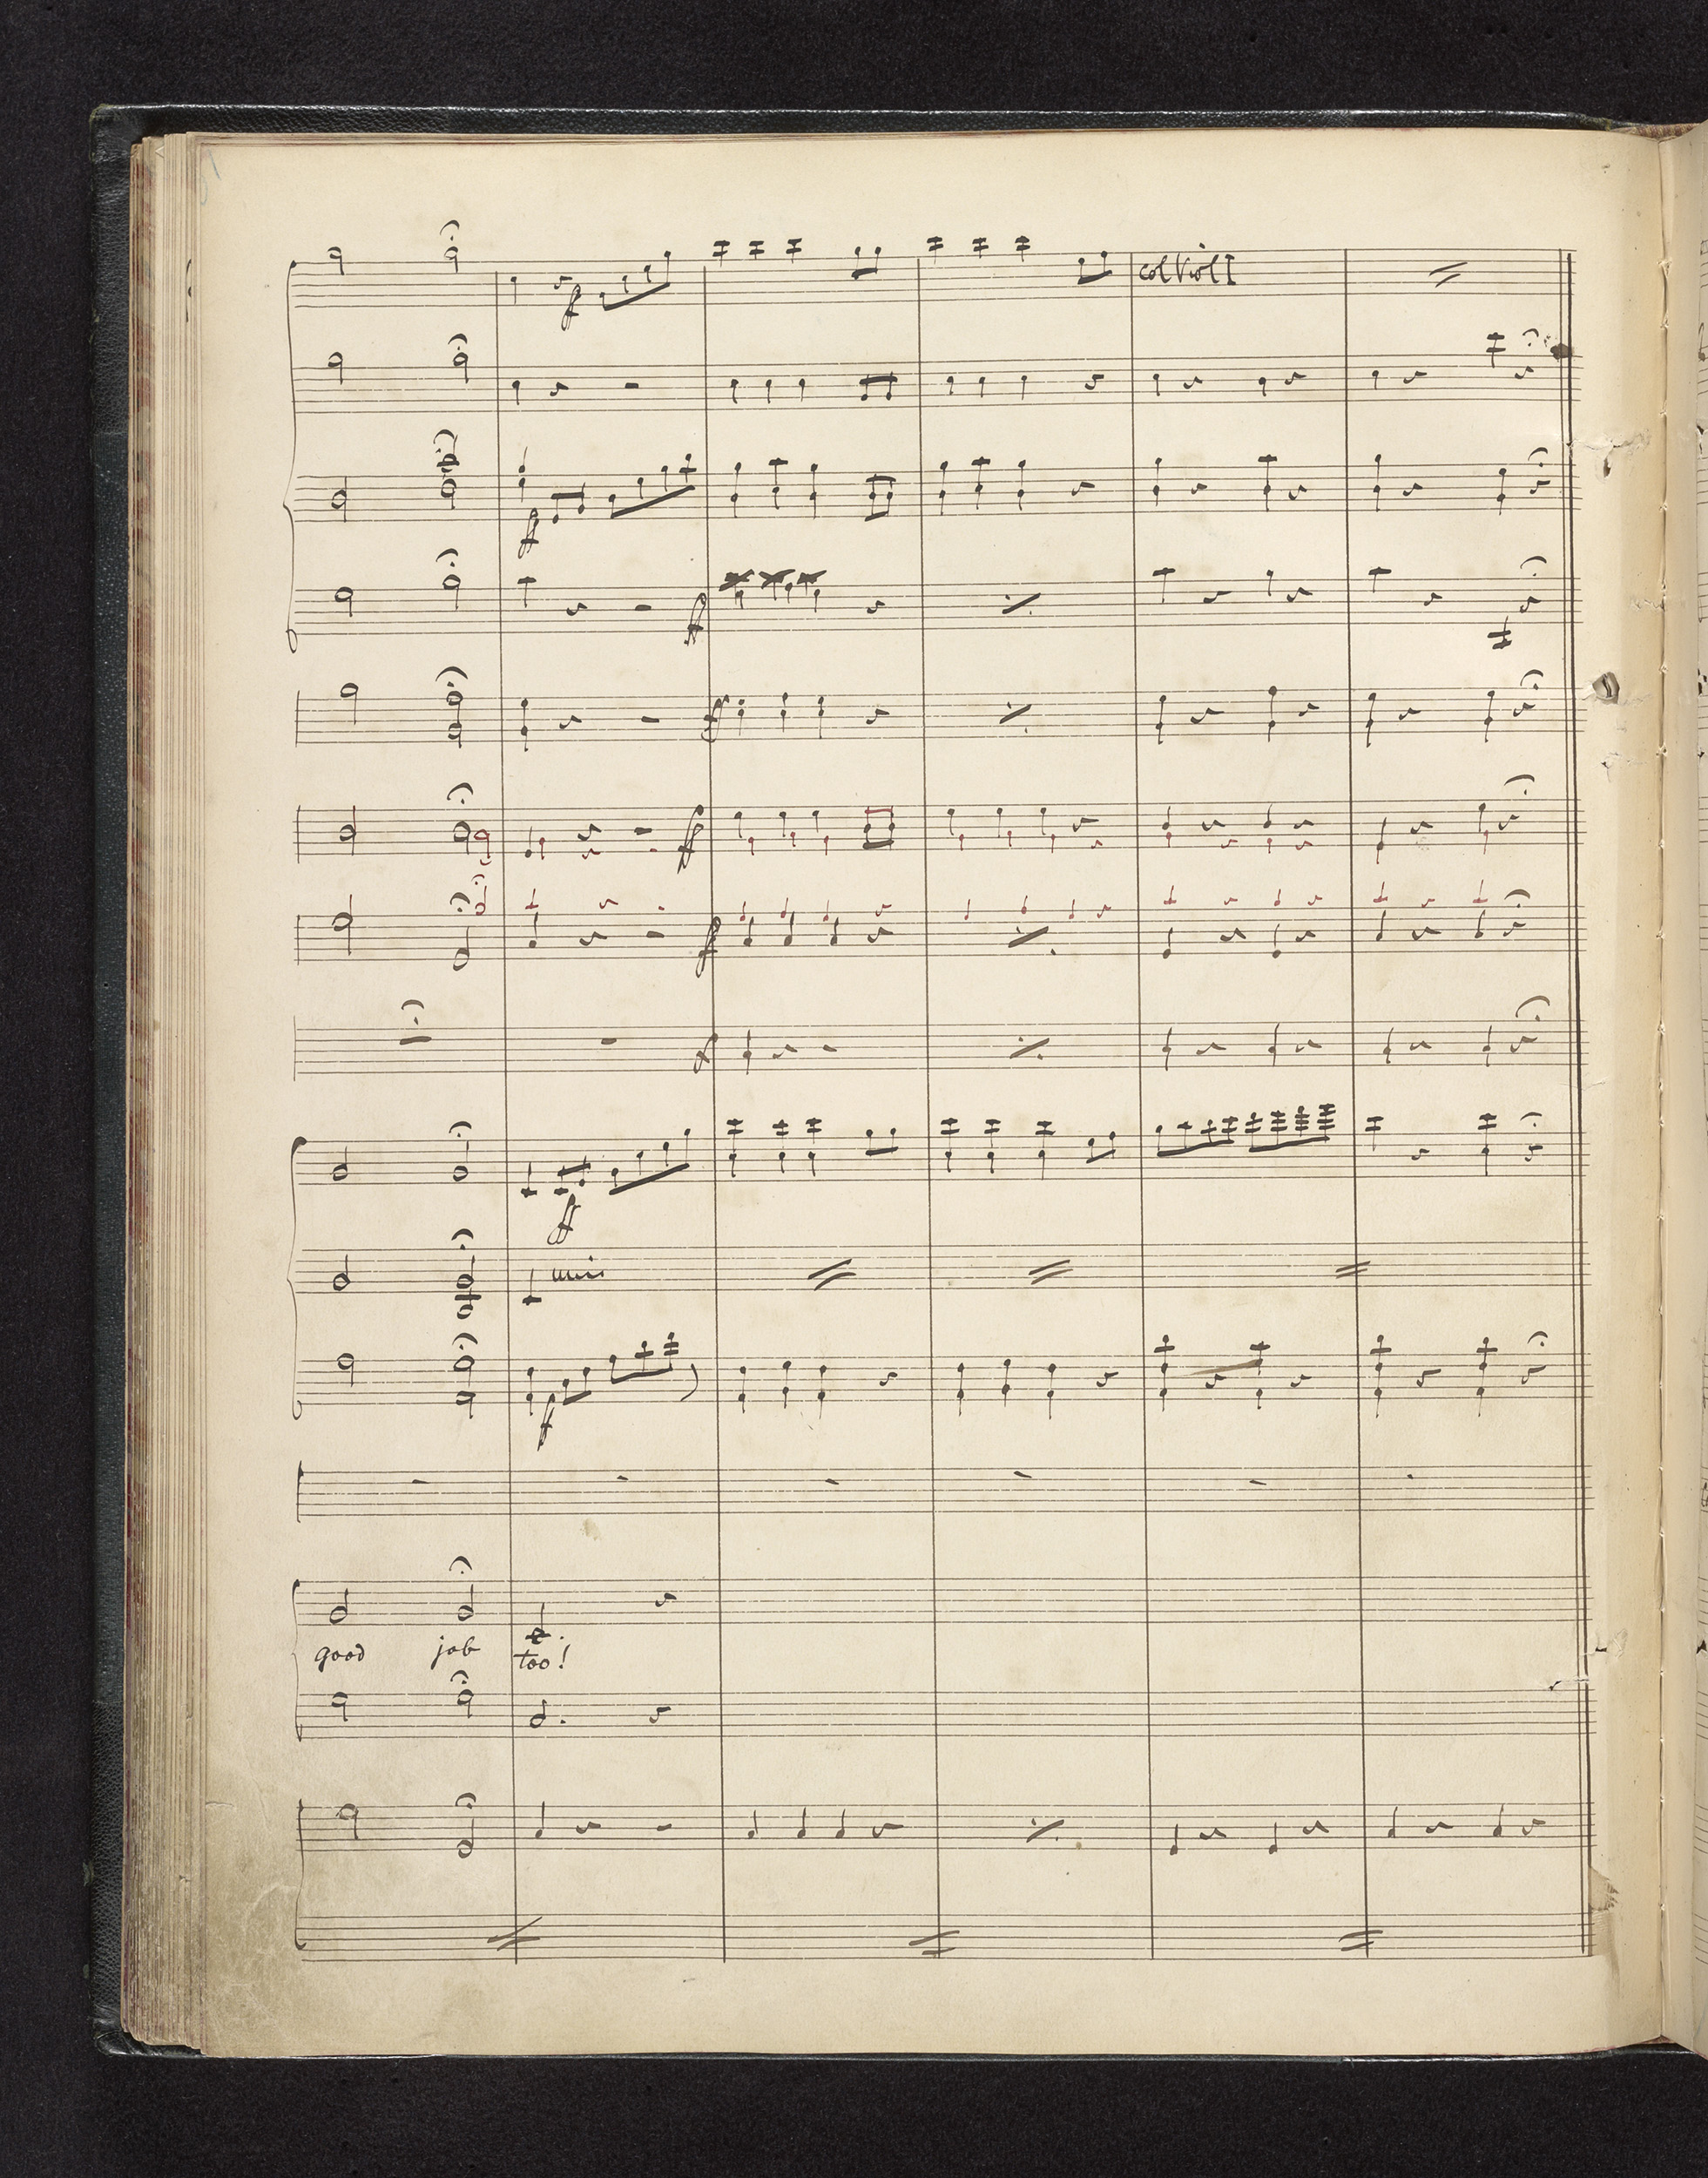 col Viol I
ff
ff
ff
ff
ff
ff
ff
ff
unis
ff
good job too!